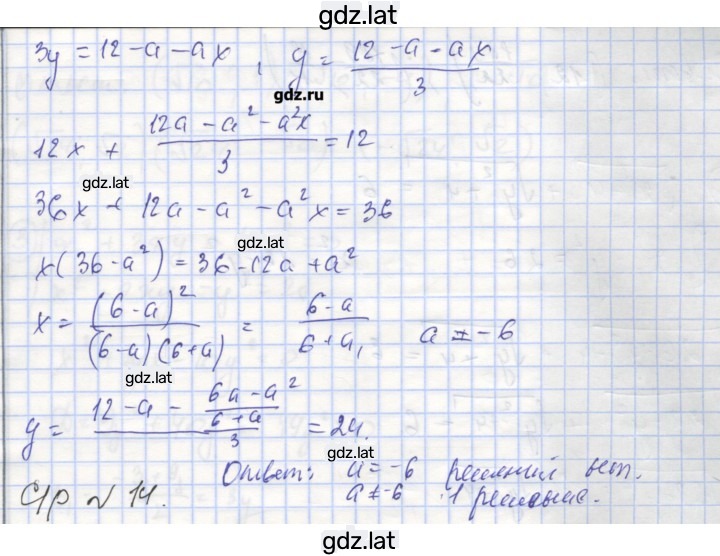 gdz.lat
3y = 12 - a - ax , y = (12 - a - ax)/3
gdz.ru
12x + (12a - a² - a²x)/3 = 12
gdz.lat
gdz.lat
36x + 12a - a² - a²x = 36
gdz.lat
x(36 - a²) = 36 - 12a + a²
gdz.lat
x = (6 - a)²/((6 - a)(6 + a)) = (6 - a)/(6 + a), a ≠ -6
gdz.lat
y = (12 - a - (6a - a²)/(6 + a))/3 = 24.
gdz.lat
Ответ: a = -6 решений нет.
a ≠ -6 1 решение.
С/р № 14.
gdz.lat